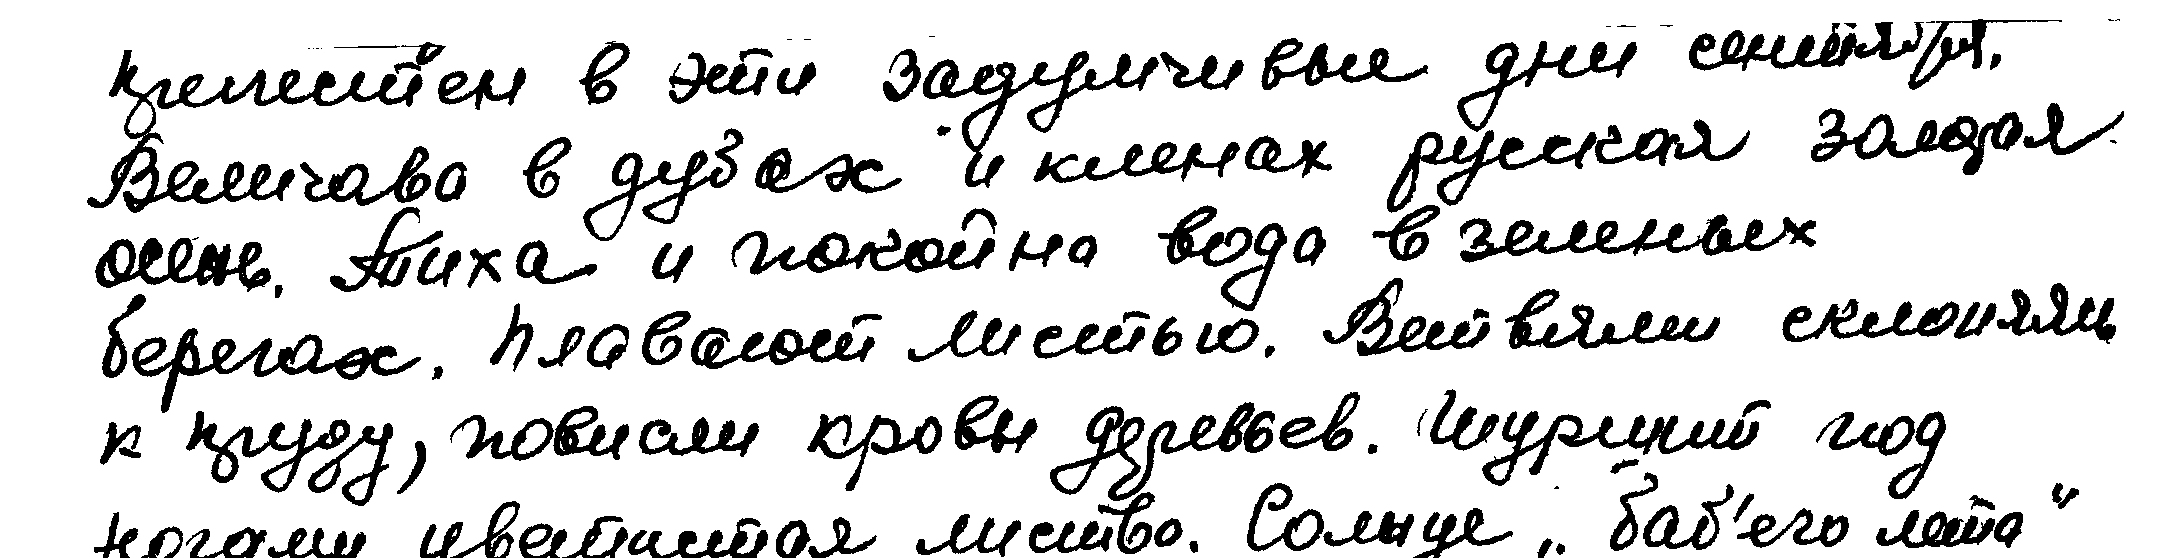 прелестен в эти задумчивые дни сентября.
Величава в дубах и кленах русская золотая
осень. Тиха и покойна вода в зеленых
берегах. Плавают листью. Ветвями склоняясь
к пруду, повисли кровы деревьев. Шуршит под
ногами цветистая листва. Солнце „баб'его лета"